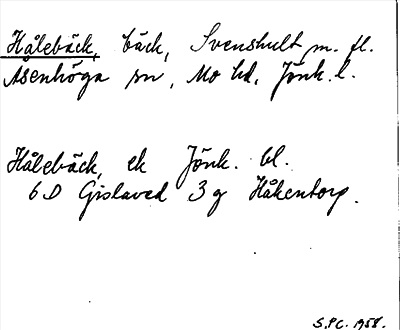 Hålebäck, bäck, Svenshult m. fl.
Åsenhöga sn, Mo hd, Jönk. l.
Hålebäck, ek Jönk. bl.
6D Gislaved 3g Håkentorp.
S.P.C. 1958.